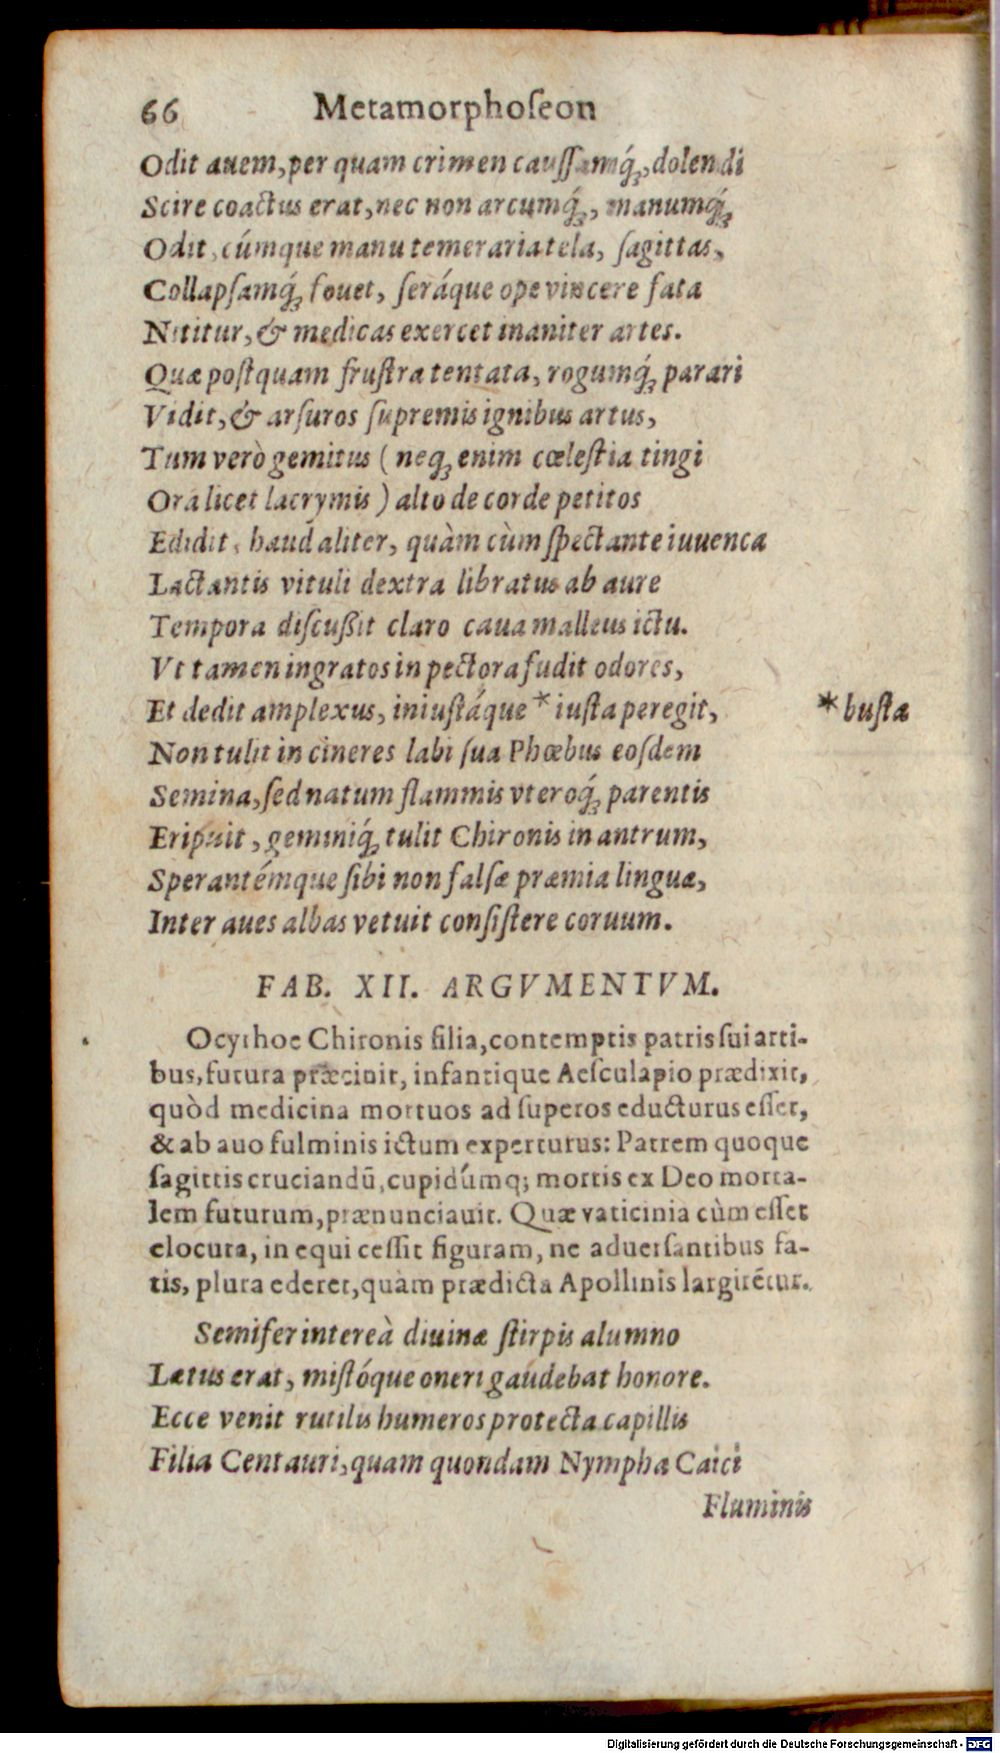 66 Metamorphoſeon
Odit auem, per quam crimen cauſſamq́;, dolendi
Scire coactus erat, nec non arcumq́;, manumq́;
Odit, cúmque manu temeraria tela, ſagittas,
Collapſamq́; fouet, ſeráque ope vincere fata
Nititur, & medicas exercet inaniter artes.
Quæ poſtquam fruſtra tentata, rogumq́; parari
Vidit, & arſuros ſupremis ignibus artus,
Tum verò gemitus ( neq; enim cœleſtia tingi
Ora licet lacrymis ) alto de corde petitos
Edidit, haud aliter, quàm cùm ſpectante iuuenca
Lactantis vituli dextra libratus ab aure
Tempora diſcußit claro caua malleus ictu.
Vt tamen ingratos in pectora fudit odores,
Et dedit amplexus, iniuſtáque * iuſta peregit, * buſta
Non tulit in cineres labi ſua Phœbus eoſdem
Semina, ſed natum flammis vteroq́; parentis
Eripuit, geminiq́; tulit Chironis in antrum,
Sperantémque ſibi non falſæ præmia linguæ,
Inter aues albas vetuit conſiſtere coruum.
FAB. XII. ARGVMENTVM.
Ocythoe Chironis filia, contemptis patris ſui arti-
bus, futura præcinit, infantique Aeſculapio prædixit,
quòd medicina mortuos ad ſuperos educturus eſſet,
& ab auo fulminis ictum experturus: Patrem quoque
ſagittis cruciandū, cupidúmq; mortis ex Deo morta-
lem futurum, prænunciauit. Quæ vaticinia cùm eſſet
elocuta, in equi ceſſit figuram, ne aduerſantibus fa-
tis, plura ederet, quàm prædicta Apollinis largirētur.
Semifer intereà diuinæ ſtirpis alumno
Lætus erat, miſtóque oneri gaudebat honore.
Ecce venit rutilis humeros protecta capillis
Filia Centauri, quam quondam Nympha Caici
Fluminis
Digitalisierung gefördert durch die Deutsche Forschungsgemeinschaft - DFG